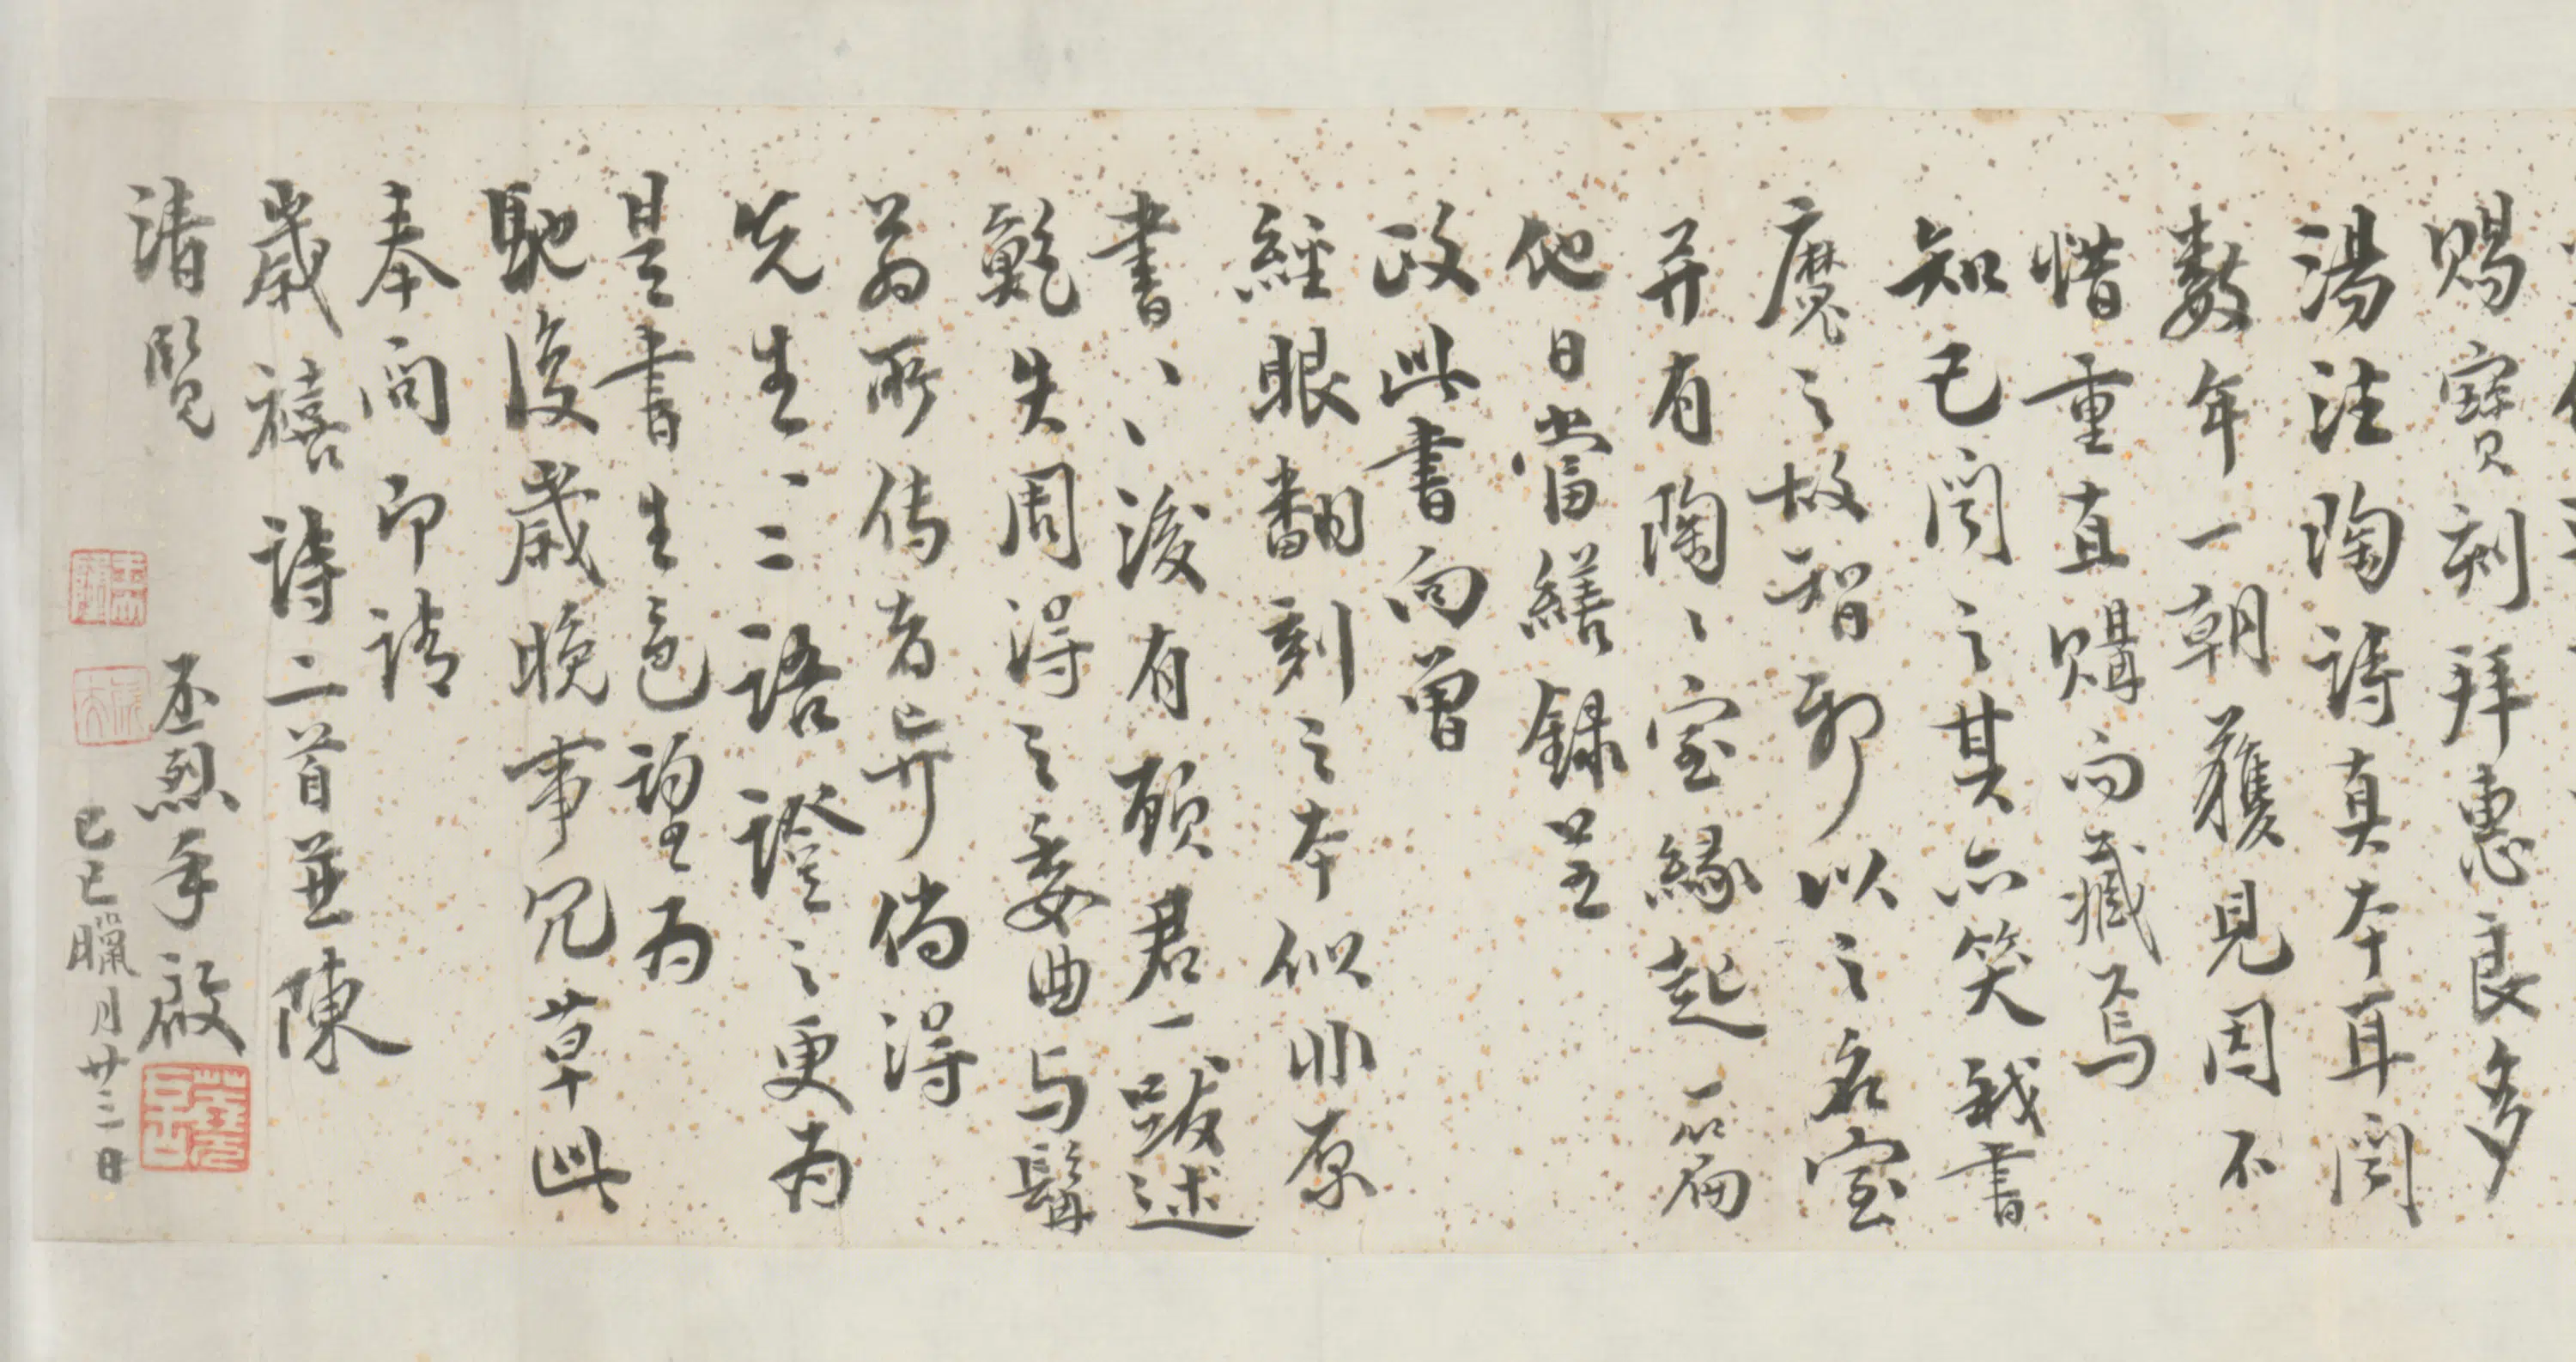 賜寶刻拜惠良多
湯注陶詩真本耳聞
數年一朝獲見因不
惜重直購而藏焉
知已聞之其亦笑我書
魔之故智耶以之名室
并有陶陶室緣起一篇
他日當繕錄呈
政此書向曾
經眼翻刻之本似非原
書書後有顧君一跋述
鮑失周得之委曲与髯
翁所传者异倘得
先生一二語證之更為
是書生色詢望為
馳復歲晚事冗草此
奉問即請
歲禧詩二首並陳
清覽
丕烈手啟
己巳臘月廿三日